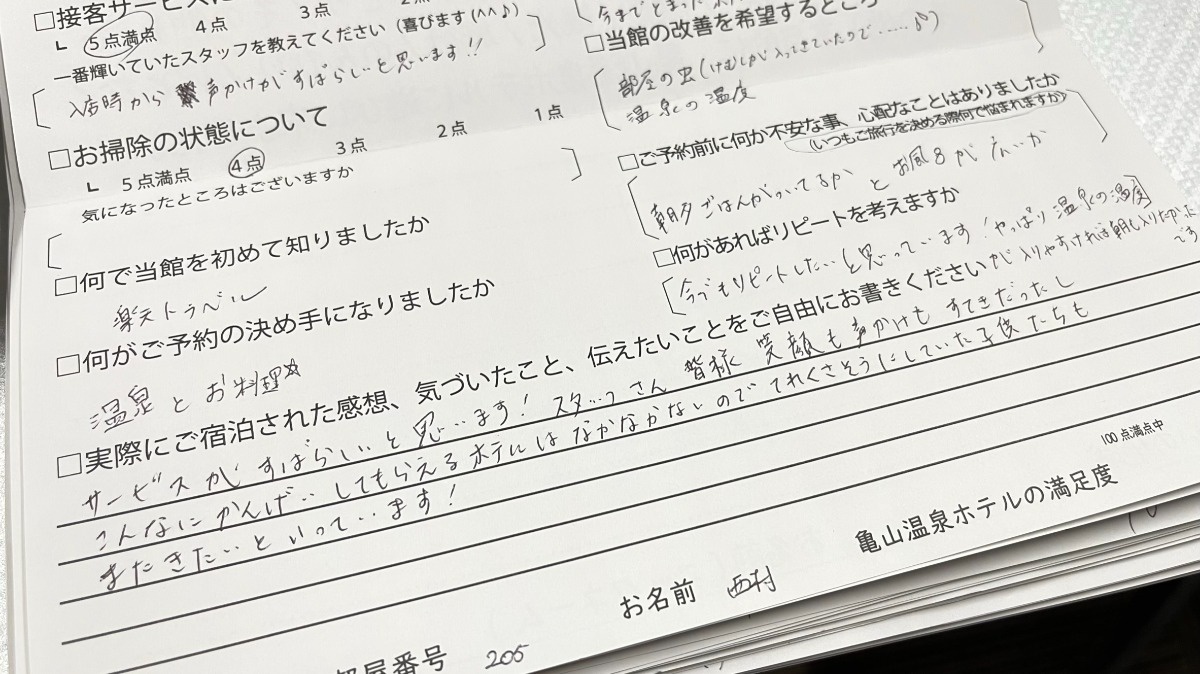 □接客サービスに
5点満点 4点 3点 2
一番輝いていたスタッフを教えてください（喜びます(^^♪）
入店時から 声かけがすばらしいと思います!!
□お掃除の状態について
5点満点 4点 3点 2点 1点
気になったところはございますか
□何で当館を初めて知りましたか
楽天トラベル
□何がご予約の決め手になりましたか
温泉とお料理☆
今までとまった
□当館の改善を希望するところ
部屋の虫(けむしが入ってきていたので……♪)
温泉の温度
□ご予約前に何か不安な事、心配なことはありましたか
（いつもご旅行を決める際何で悩まれますか）
朝夕ごはんがついてるか と お風呂が
□何があればリピートを考えますか
今でもリピートしたいと思っています!やっぱり温泉の温度
が入りやすければ朝も入りたかった
です
□実際にご宿泊された感想、気づいたこと、伝えたいことをご自由にお書きください
サービスがすばらしいと思います! スタッフさん 皆様 笑顔も声かけもすてきだったし
こんなにかんげいしてもらえるホテルはなかなかないので てれくさそうにしていた子供たちも
またきたいといっています!
100点満点中
亀山温泉ホテルの満足度
お名前 西村
部屋番号 205